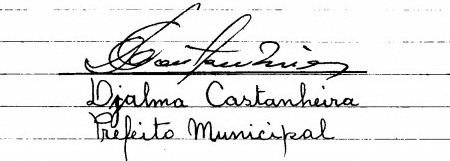 Castanheira
Djalma Castanheira
Prefeito Municipal